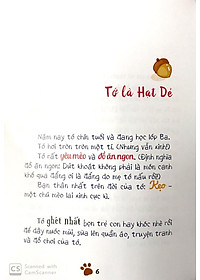 Tớ là Hạt Dẻ
Năm nay tớ chín tuổi và đang học lớp Ba.
Tớ hơi tròn tròn một tí. (Nhưng vẫn xinh!)
Tớ rất yêu mèo và đồ ăn ngon. (Định nghĩa
đồ ăn ngon: Dứt khoát không phải là món canh
khổ qua đắng ơi là đắng do mẹ tớ nấu rồi!)
Bạn thân nhất trên đời của tớ: Kẹo -
một chú mèo lai xinh cực kì.
Tớ ghét nhất bọn trẻ con hay khóc nhè rồi
dề dây nước mũi, sữa lên quần áo, truyện tranh
và đồ chơi của tớ.
6
CS Scanned with
CamScanner